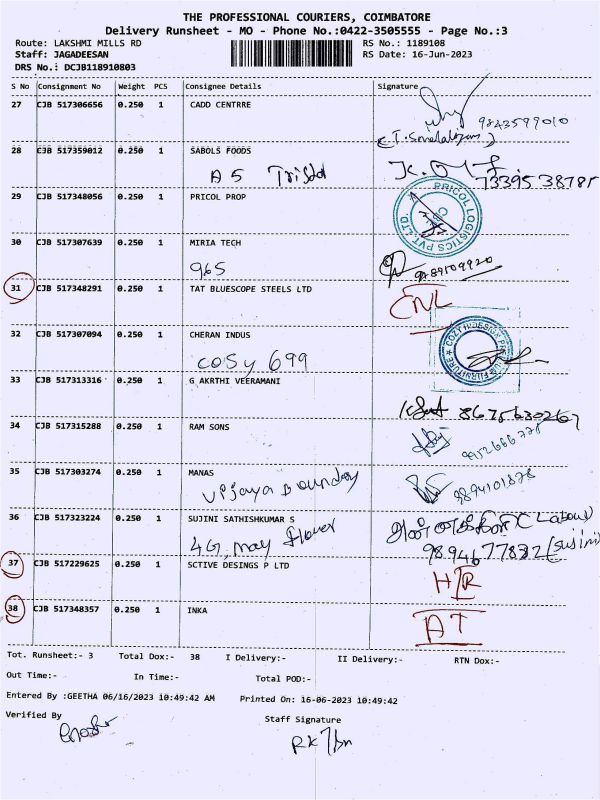 THE PROFESSIONAL COURIERS, COIMBATORE
Delivery Runsheet - MO - Phone No.:0422-3505555 - Page No.:3
Route: LAKSHMI MILLS RD
RS No.: 1189108
Staff: JAGADEESAN
RS Date: 16-Jun-2023
DRS No.: DCJB118910803
S No Consignment No Weight PCS Consignee Details Signature
27 CJB 517306656 0.250 1 CADD CENTRRE
9843599010
28 CJB 517359012 0.250 1 SABOLS FOODS
A 5
73395 38785
29 CJB 517348056 0.250 1 PRICOL PROP
PRICOL LOGISTICS PVT. LTD
30 CJB 517307639 0.250 1 MIRIA TECH
965
9789109920
31 CJB 517348291 0.250 1 TAT BLUESCOPE STEELS LTD
CNL
32 CJB 517307094 0.250 1 CHERAN INDUS
COSY 699
33 CJB 517313316 0.250 1 G AKRTHI VEERAMANI
8675630267
34 CJB 517315288 0.250 1 RAM SONS
9952666778
35 CJB 517303274 0.250 1 MANAS
Vijaya Boundary
9894101878
36 CJB 517323224 0.250 1 SUJINI SATHISHKUMAR S
4G, May flower
9894677832 (Sujini)
37 CJB 517229625 0.250 1 SCTIVE DESINGS P LTD
HIR
38 CJB 517348357 0.250 1 INKA
AT
Tot. Runsheet:- 3 Total Dox:- 38 I Delivery:- II Delivery:- RTN Dox:-
Out Time:- In Time:- Total POD:-
Entered By :GEETHA 06/16/2023 10:49:42 AM Printed On: 16-06-2023 10:49:42
Verified By
Staff Signature